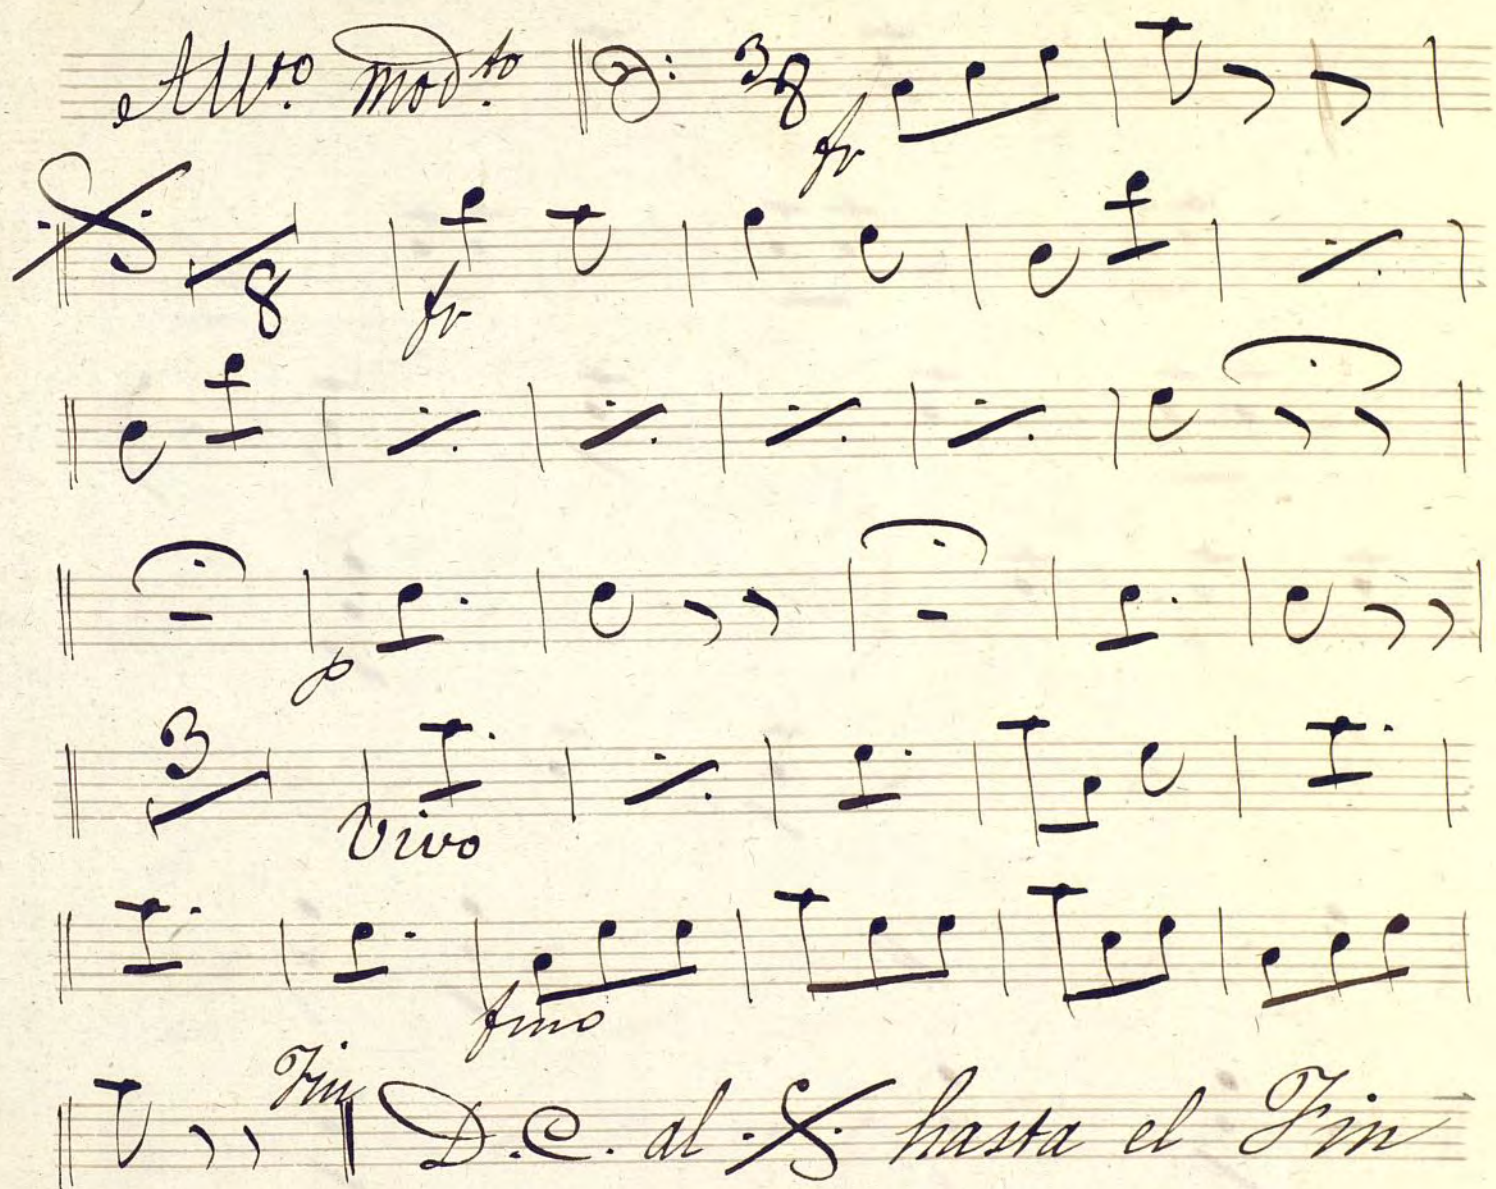 Allto. modto. 3 8
fr
8
fr
p
3
Vivo
fmo
Fin
D.C. al hasta el Fin